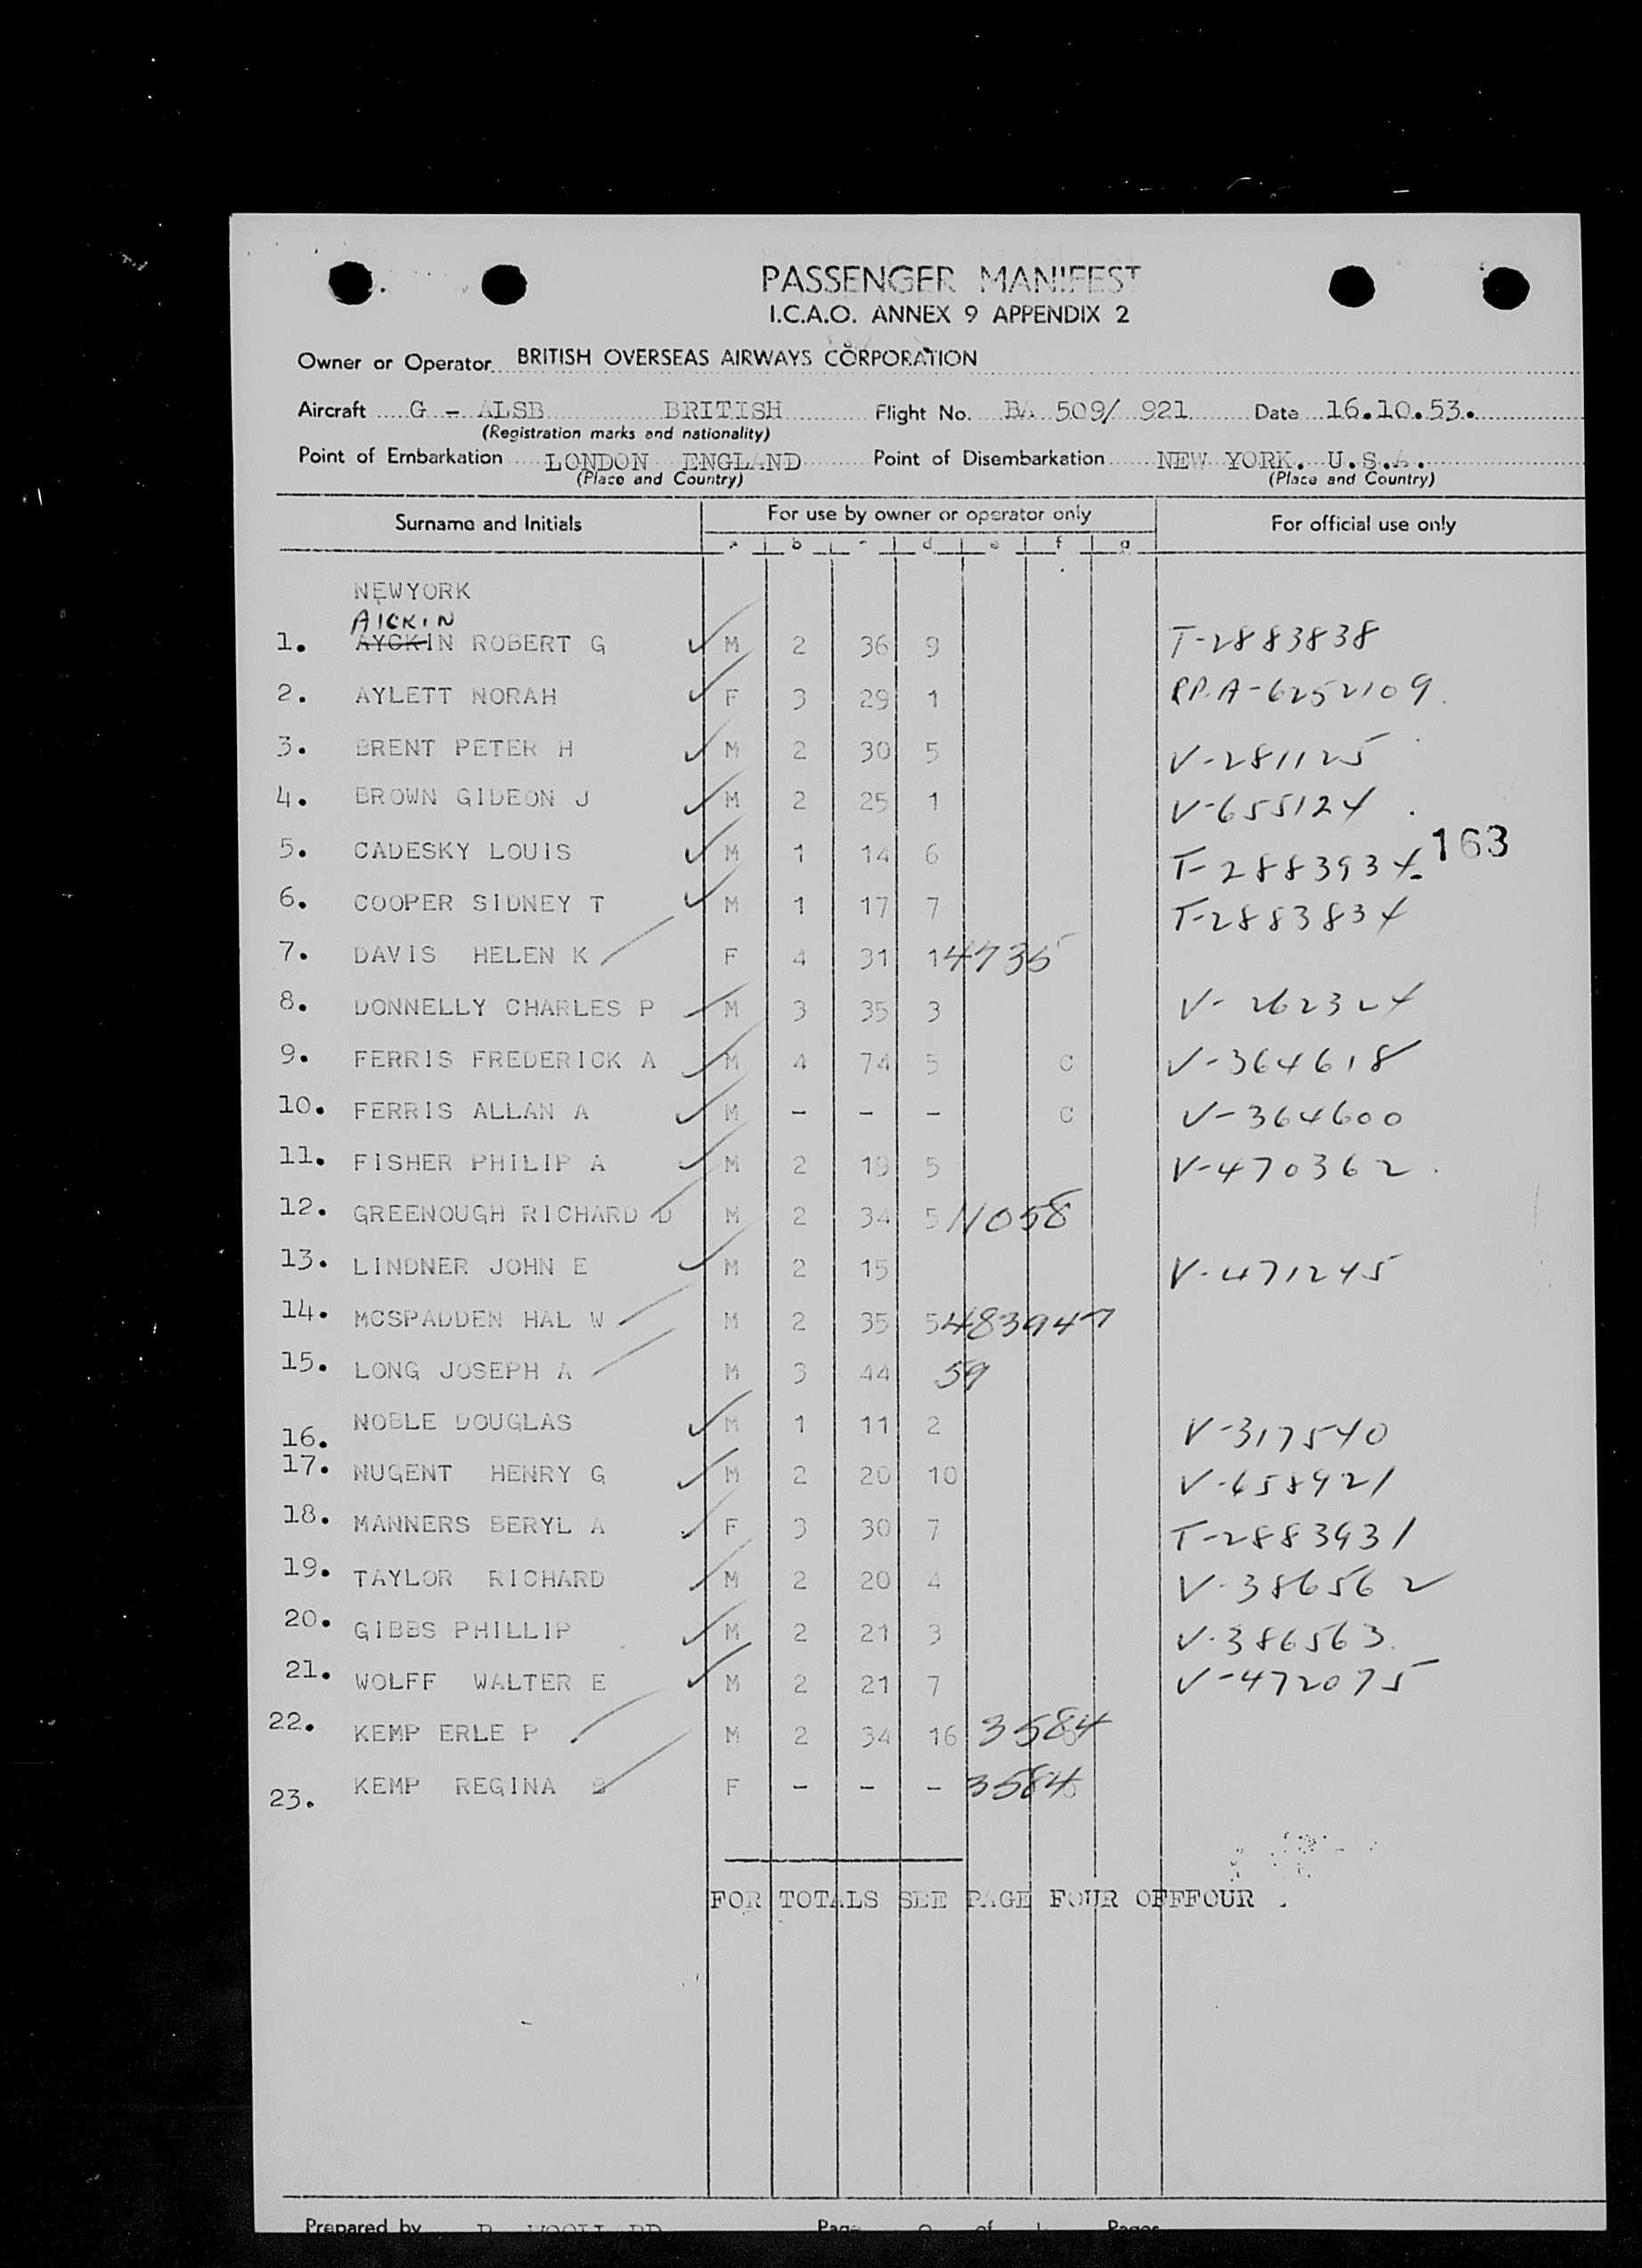 PASSENGER MANIFEST
I.C.A.O. ANNEX 9 APPENDIX 2
Owner or Operator BRITISH OVERSEAS AIRWAYS CORPORATION
Aircraft G - ALSB BRITISH Flight No. BA 509/ 921 Date 16.10.53.
(Registration marks and nationality)
Point of Embarkation LONDON ENGLAND Point of Disembarkation NEW YORK. U.S.A.
(Place and Country) (Place and Country)
Surname and Initials For use by owner or operator only For official use only
a b c d e f g
NEWYORK
AICKIN
1. AYCKIN ROBERT G M 2 36 9 T-2883838
2. AYLETT NORAH F 3 29 1 RP.A-6252109
3. BRENT PETER H M 2 30 5 V-281125
4. BROWN GIDEON J M 2 25 1 V-655124
163
5. CADESKY LOUIS M 1 14 6 T-2883934
6. COOPER SIDNEY T M 1 17 7 T-2883834
7. DAVIS HELEN K F 4 31 1 4735
8. DONNELLY CHARLES P M 3 35 3 V-262324
9. FERRIS FREDERICK A M 4 74 5 C V-364618
10. FERRIS ALLAN A M - - - C V-364600
11. FISHER PHILIP A M 2 19 5 V-470362
12. GREENOUGH RICHARD D M 2 34 5 11058
13. LINDNER JOHN E M 2 15 V-471245
14. MCSPADDEN HAL W M 2 35 5 483947
15. LONG JOSEPH A M 3 44 59
16. NOBLE DOUGLAS M 1 11 2 V-317540
17. NUGENT HENRY G M 2 20 10 V-658921
18. MANNERS BERYL A F 3 30 7 T-2883931
19. TAYLOR RICHARD M 2 20 4 V-386562
20. GIBBS PHILLIP M 2 21 3 V-386563
21. WOLFF WALTER E M 2 21 7 V-472075
22. KEMP ERLE P M 2 34 16 3584
23. KEMP REGINA F - - - 3584
FOR TOTALS SEE PAGE FOUR OFFFOUR .
Prepared by Page of Pages